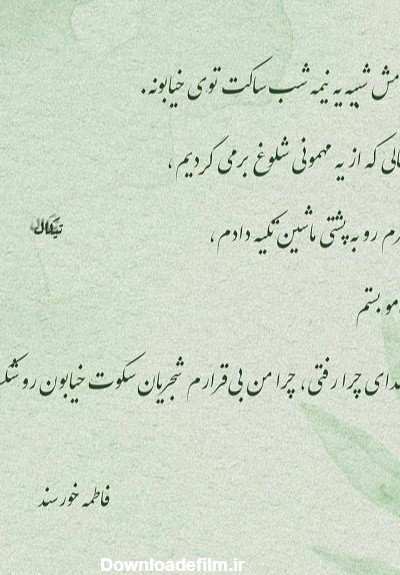 مش شبیه یه نیمه شب ساکت توی خیابونه.
الی که از یه مهمونی شلوغ برمی گردیم،
رم رو به پشتی ماشین تکیه دادم،
مو بستم
دای چرا رفتی، چرا من بی قرارم شجریان سکوت خیابون رو شک
فاطمه خورسند
Downloadefilm.ir